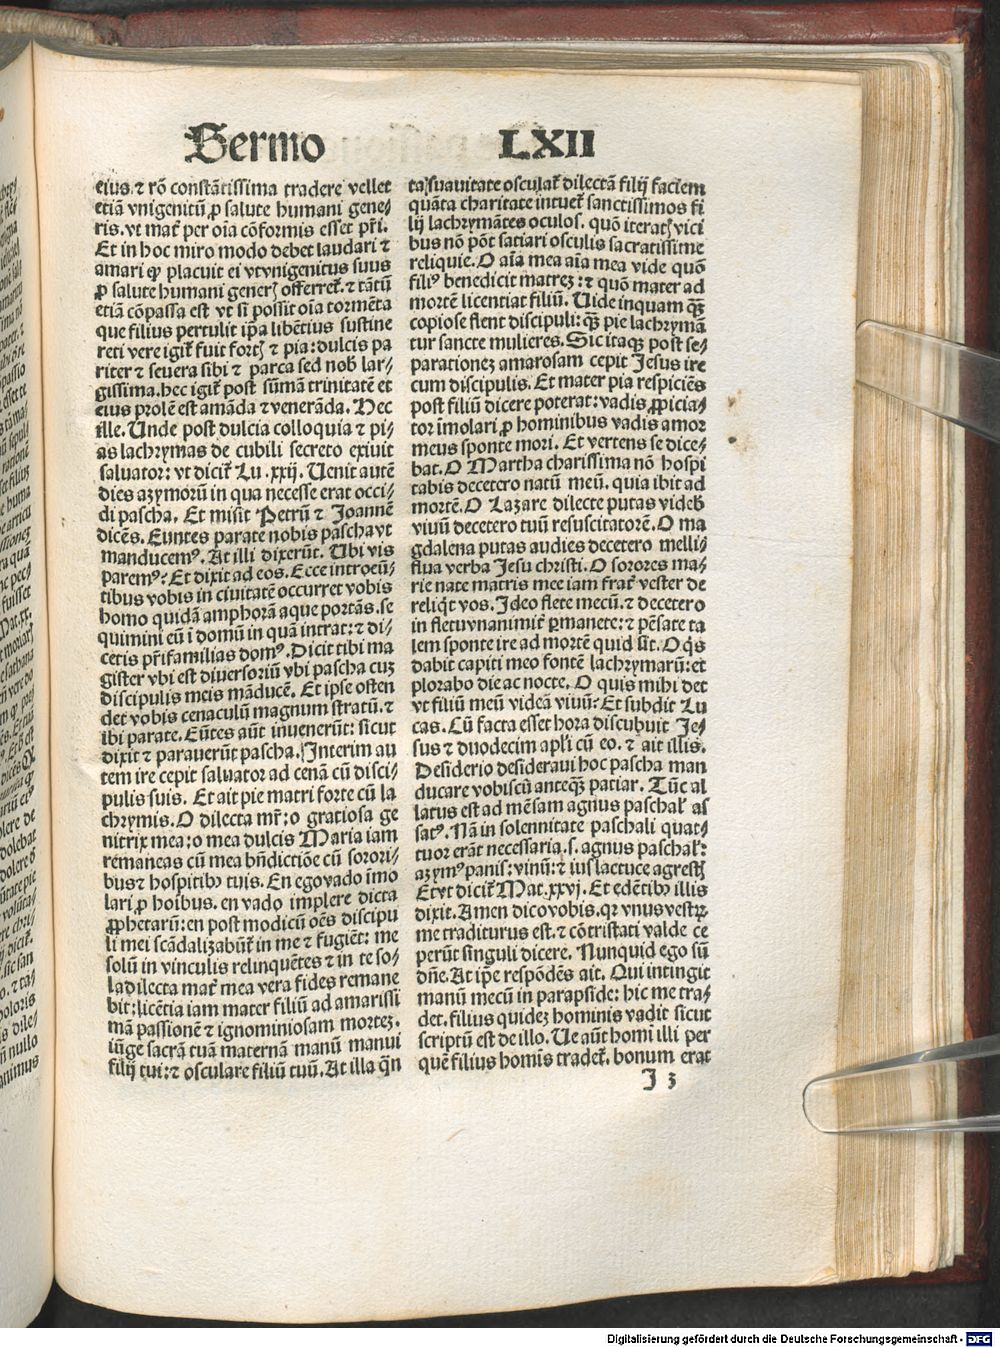 Sermo LXII
eius.⁊ rō constātissima tradere vellet
etiā vnigenitū ꝓ salute humani gene⸗
ris.vt matꝛ̄ per oīa cōformis esset pr̄i.
Et in hoc miro modo debet laudari ⁊
amari ꝙ placuit ei vt vnigenitus suus
ꝓ salute humani generꝭ offerret̄.⁊ tātū
etiā cōpassa est vt si possit oīa tormēta
que filius pertulit ip̄a libētius sustine
ret:vere igit̄ fuit fortꝭ ⁊ pia:dulcis pa
riter ⁊ seuera sibi ⁊ parca sed nob̄ lar⸗
gissima.hec igit̄ post sūmā trinitatē et
eius prolē est amāda ⁊ venerāda. Hec
ille. Unde post dulcia colloquia ⁊ pi⸗
as lachrymas de cubili secreto exiuit
saluator: vt dicit̄ Lu .xxij. Uenit autē
dies azymorū in qua necesse erat occi⸗
di pascha. Et misit Petrū ⁊ Joannē
dicēs. Euntes parate nobis pascha vt
manducemꝰ. At illi dixerūt. Ubi vis
paremꝰ? Et dixit ad eos. Ecce introeū⸗
tibus vobis in ciuitatē occurret vobis
homo quidā amphorā aque portās. se
quimini eū ī domū in quā intrat: ⁊ di⸗
cetis pr̄ifamilias domꝰ. Dicit tibi ma
gister vbi est diuersoriū vbi pascha cuꝫ
discipulis meis māducē. Et ipse osten
det vobis cenaculū magnum stratū. ⁊
ibi parate. Eūtes aūt inuenerūt: sicut
dixit ⁊ parauerūt pascha. Interim au
tem ire cepit saluator ad cenā cū disci⸗
pulis suis. Et ait pie matri forte cū la
chrymis. O dilecta mr̄: o gratiosa ge
nitrix mea: o mea dulcis Maria iam
remaneas cū mea bn̄dictiōe cū sorori⸗
bus ⁊ hospitibꝫ tuis. En ego vado īmo
lari ꝓ hoībus. en vado implere dicta
ꝓphetarū: en post modicū oēs discipu
li mei scādalizabūt̄ in me ⁊ fugiēt: me
solū in vinculis relinquētes ⁊ in te so⸗
la dilecta matꝛ̄ mea vera fides remane
bit: licētia iam mater filiū ad amarissi
mā passionē ⁊ ignominiosam morteꝫ.
iūge sacrā tuā maternā manū manui
filij tui: ⁊ osculare filiū tuū. At illa qn̄
ta suauitate osculat̄ dilectā filij faciem
quāta charitate intuet̄ sanctissimos fi
lij lachrymātes oculos. quō iteratꝭ vici
bus nō pōt satiari osculis sacratissime
reliquie. O aīa mea aīa mea vide quō
filiꝰ benedicit matreꝫ: ⁊ quō mater ad
mortē licentiat filiū. Uide inquam qꝫ
copiose flent discipuli: qꝫ pie lachrymā
tur sancte mulieres. Sic itaqꝫ post se⸗
parationeꝫ amarosam cepit Jesus ire
cum discipulis. Et mater pia respiciēs
post filiū dicere poterat: vadis ꝓpicia⸗
tor īmolari ꝓ hominibus vadis amor
meus sponte mori. Et vertens se dice⸗
bat. O Martha charissima nō hospi
tabis decetero natū meū. quia ibit ad
mortē. O Lazare dilecte putas videb̄
viuū decetero tuū resuscitatorē. O ma
gdalena putas audies decetero melli⸗
flua verba Jesu christi. O sorores ma⸗
rie nate matris mee iam frat̄ vester de
reliqt̄ vos. Ideo flete mecū. ⁊ decetero
in fletu vnanimit̄ ꝑmanete: ⁊ pēsate ta
lem sponte ire ad mortē quid sit. O qͥs
dabit capiti meo fontē lachrymarū: et
plorabo die ac nocte. O quis mihi det
vt filiū meū videā viuū? Et subdit Lu
cas. Cū facta esset hora discubuit Je⸗
sus ⁊ duodecim apl̄i cū eo. ⁊ ait illis.
Desiderio desideraui hoc pascha man
ducare vobiscū anteqꝫ patiar. Tūc al
latus est ad mēsam agnus paschal̄ as
satꝰ. Nā in solennitate paschali quat⸗
tuor erāt necessaria .s. agnus paschal̄:
azymꝰ panis: vinū: ⁊ ius lactuce agrestꝭ
Et vt dicit̄ Mat .xxvj. Et edētibꝫ illis
dixit. Amen dico vobis. qꝛ vnus vestꝝ
me traditurus est. ⁊ cōtristati valde ce
perūt singuli dicere. Nunquid ego sū
dn̄e. At ip̄e respōdēs ait. Qui intingit
manū mecū in parapside: hic me tra⸗
det. filius quideꝫ hominis vadit sicut
scriptū est de illo. Ue aūt homī illi per
quē filius homīs tradet̄. bonum erat
I 3
Digitalisierung gefördert durch die Deutsche Forschungsgemeinschaft - DFG